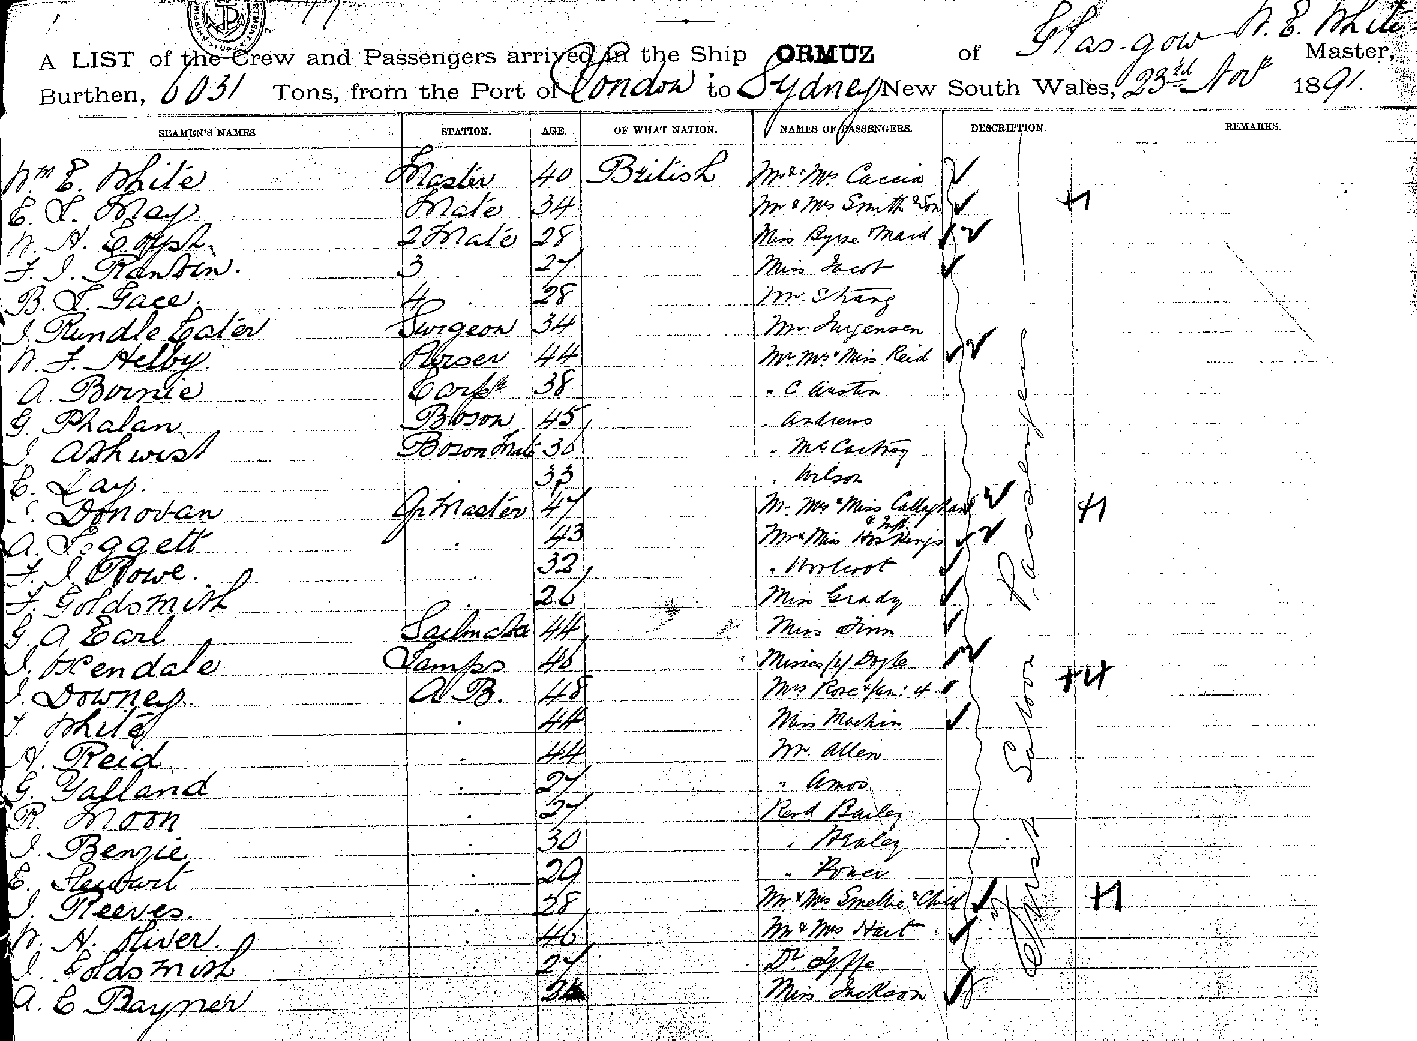 Glasgow W. E. White
A LIST of the Crew and Passengers arrived in the Ship ORMUZ of Master,
Burthen, 6031 Tons, from the Port of London to Sydney New South Wales, 23rd Novr 1891.
SEAMEN'S NAMES STATION. AGE. OF WHAT NATION. NAMES OF PASSENGERS. DESCRIPTION. REMARKS.
Wm E. White Master 40 British Mr & Mrs Caccia
E. L. May Mate 34 Mr & Mrs Smith & Son
W. H. E. 2 Mate 28 Miss Maid
F. J. 3 27 Miss Jacob
B. 4 28 Mr.
J. Rundle Surgeon 34 Mr Jurgensen
W. F. Helby Purser 44 Mr Mrs & Miss Reid
A. Birnie Carpr 38 " C Austin
G. Phalan Boson 45 " Andrews
J. Ashurst Boson Mate 36 " McCartney
E. Day. 33 " Wilson
Donovan Qr Master 47 Mr. Mrs & Miss Callaghan
A. Leggett 43 Mr & Miss Hoskings
F. J. Rowe. 32
F. Goldsmith 26 Miss Grady
G. A Earl 44 Miss Finn
J. Lamps 46 Misses (2) Doyle
J. Downey A B. 48 Mrs Rose
White 44 Miss Mackin
H. Reid 44 Mr. Allen
G. 27 " Amos
R. Moon 27 Revd Bailey
J. Benzie 30 " Healey
E. Stewart 29 " Power
J. Reeves. 28 Mr & Mrs Smellie & Child
W. H. 46 Mr & Mrs Hart
J. Goldsmith 27 Dr Fyffe
A. E Rayner Miss Jackson
First Saloon Passengers